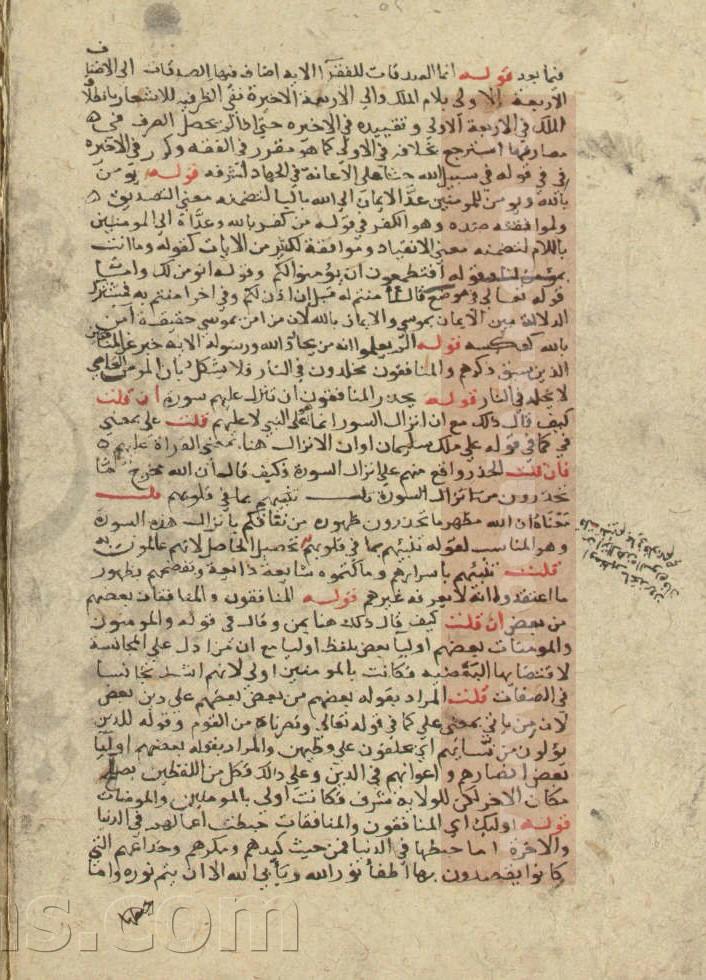 فيما بعد قوله انما الصدقات للفقراء الاية اضاف فيها الصدقات الى الاصناف
الاربعة الاولى بلام الملك والى الاربعة الاخيرة بفي الظرفية للاشعار باطلاق
الملك في الاربعة الاولى وتقييده في الاخيرة حتى اذا لم يحصل الصرف في
مصارفها استرجع بخلافه في الاولى كما هو مقرر في الفقه وكرر في الاخيرة
في في قوله في سبيل الله حثا على الاعانة في الجهاد لشرفه قوله يومن
بالله ويومن للمومنين عدا الايمان الى الله بالبا لتضمنه معنى التصديق
ولموافقته ضده وهو الكفر في قوله من كفر بالله وعداه الى المومنين
باللام لتضمنه معنى الانقياد وموافقة لكثير من الايات كقوله وما انت
بمومن لنا وقوله افتطمعون ان يومنوا لكم وقوله انومن لك واما
قوله تعالى في موضع قال اامنتم له قبل ان اذن لكم وفي اخر امنتم به فمشترك
الدلالة بين الايمان بموسى والايمان بالله لان من امن بموسى حقيقة امن
بالله كعكسه قوله الم يعلموا انه من يحادد الله ورسوله الاية خبر عن المنافقين
الذين سبق ذكرهم والمنافقون مخلدون في النار فلا يشكل بان المومن العاصي
لا يخلد في النار قوله يحذر المنافقون ان تنزل عليهم سورة ان قلت
كيف قال ذلك مع ان انزال السور انما هو على النبي لا عليهم قلت على بمعنى
في كما في قوله على ملك سليمان او ان الانزال هنا بمعنى القراة عليهم
فان قلت الحذر واقع منهم على انزال السورة فكيف قال ان الله مخرج ما
تحذرون من انزال السورة قلت تنبيهم بما في قلوبهم قلت
معناه ان الله مظهر ما تحذرون ظهوره من نفاقكم بانزال هذه السورة
وهو المناسب لقوله تنبيهم بما في قلوبهم تحصيل الحاصل لانهم عالمون به
قلت تنبيهم باسرارهم وما كتموه شايعة ذايعة وتفضحهم بظهور
ما اعتقدوا انه لا يعرفه غيرهم قوله المنافقون والمنافقات بعضهم
من بعض ان قلت كيف قال ذلك هنا بمن وقال في قوله والمومنون
والمومنات بعضهم اوليا بعض بلفظ اوليا مع ان من ادل على المجانسة
لاقتضايها البعضية فكانت بالمومنين اولى لانهم اشد تجانسا
في الصفات قلت المراد بقوله بعضهم من بعض بعضهم على دين بعض
لان من ياتي بمعنى على كما في قوله تعالى ونصرناه من القوم وقوله للذين
يولون من نسائهم اي يحلفون على وطيهن والمراد بقوله بعضهم اوليا
بعض انصارهم واعوانهم في الدين وعلى ذلك فكل من اللفظين يصلح
مكان الاخر لكن للولاية شرف فكانت اولى بالمومنين والمومنات
قوله اوليك اي المنافقون والمنافقات حبطت اعمالهم في الدنيا
والاخرة اما حبطها في الدنيا فمن حيث كيدهم ومكرهم وخداعهم التي
كانوا يقصدون بها اطفا نور الله ويابى الله الا ان يتم نوره واما
ns.com